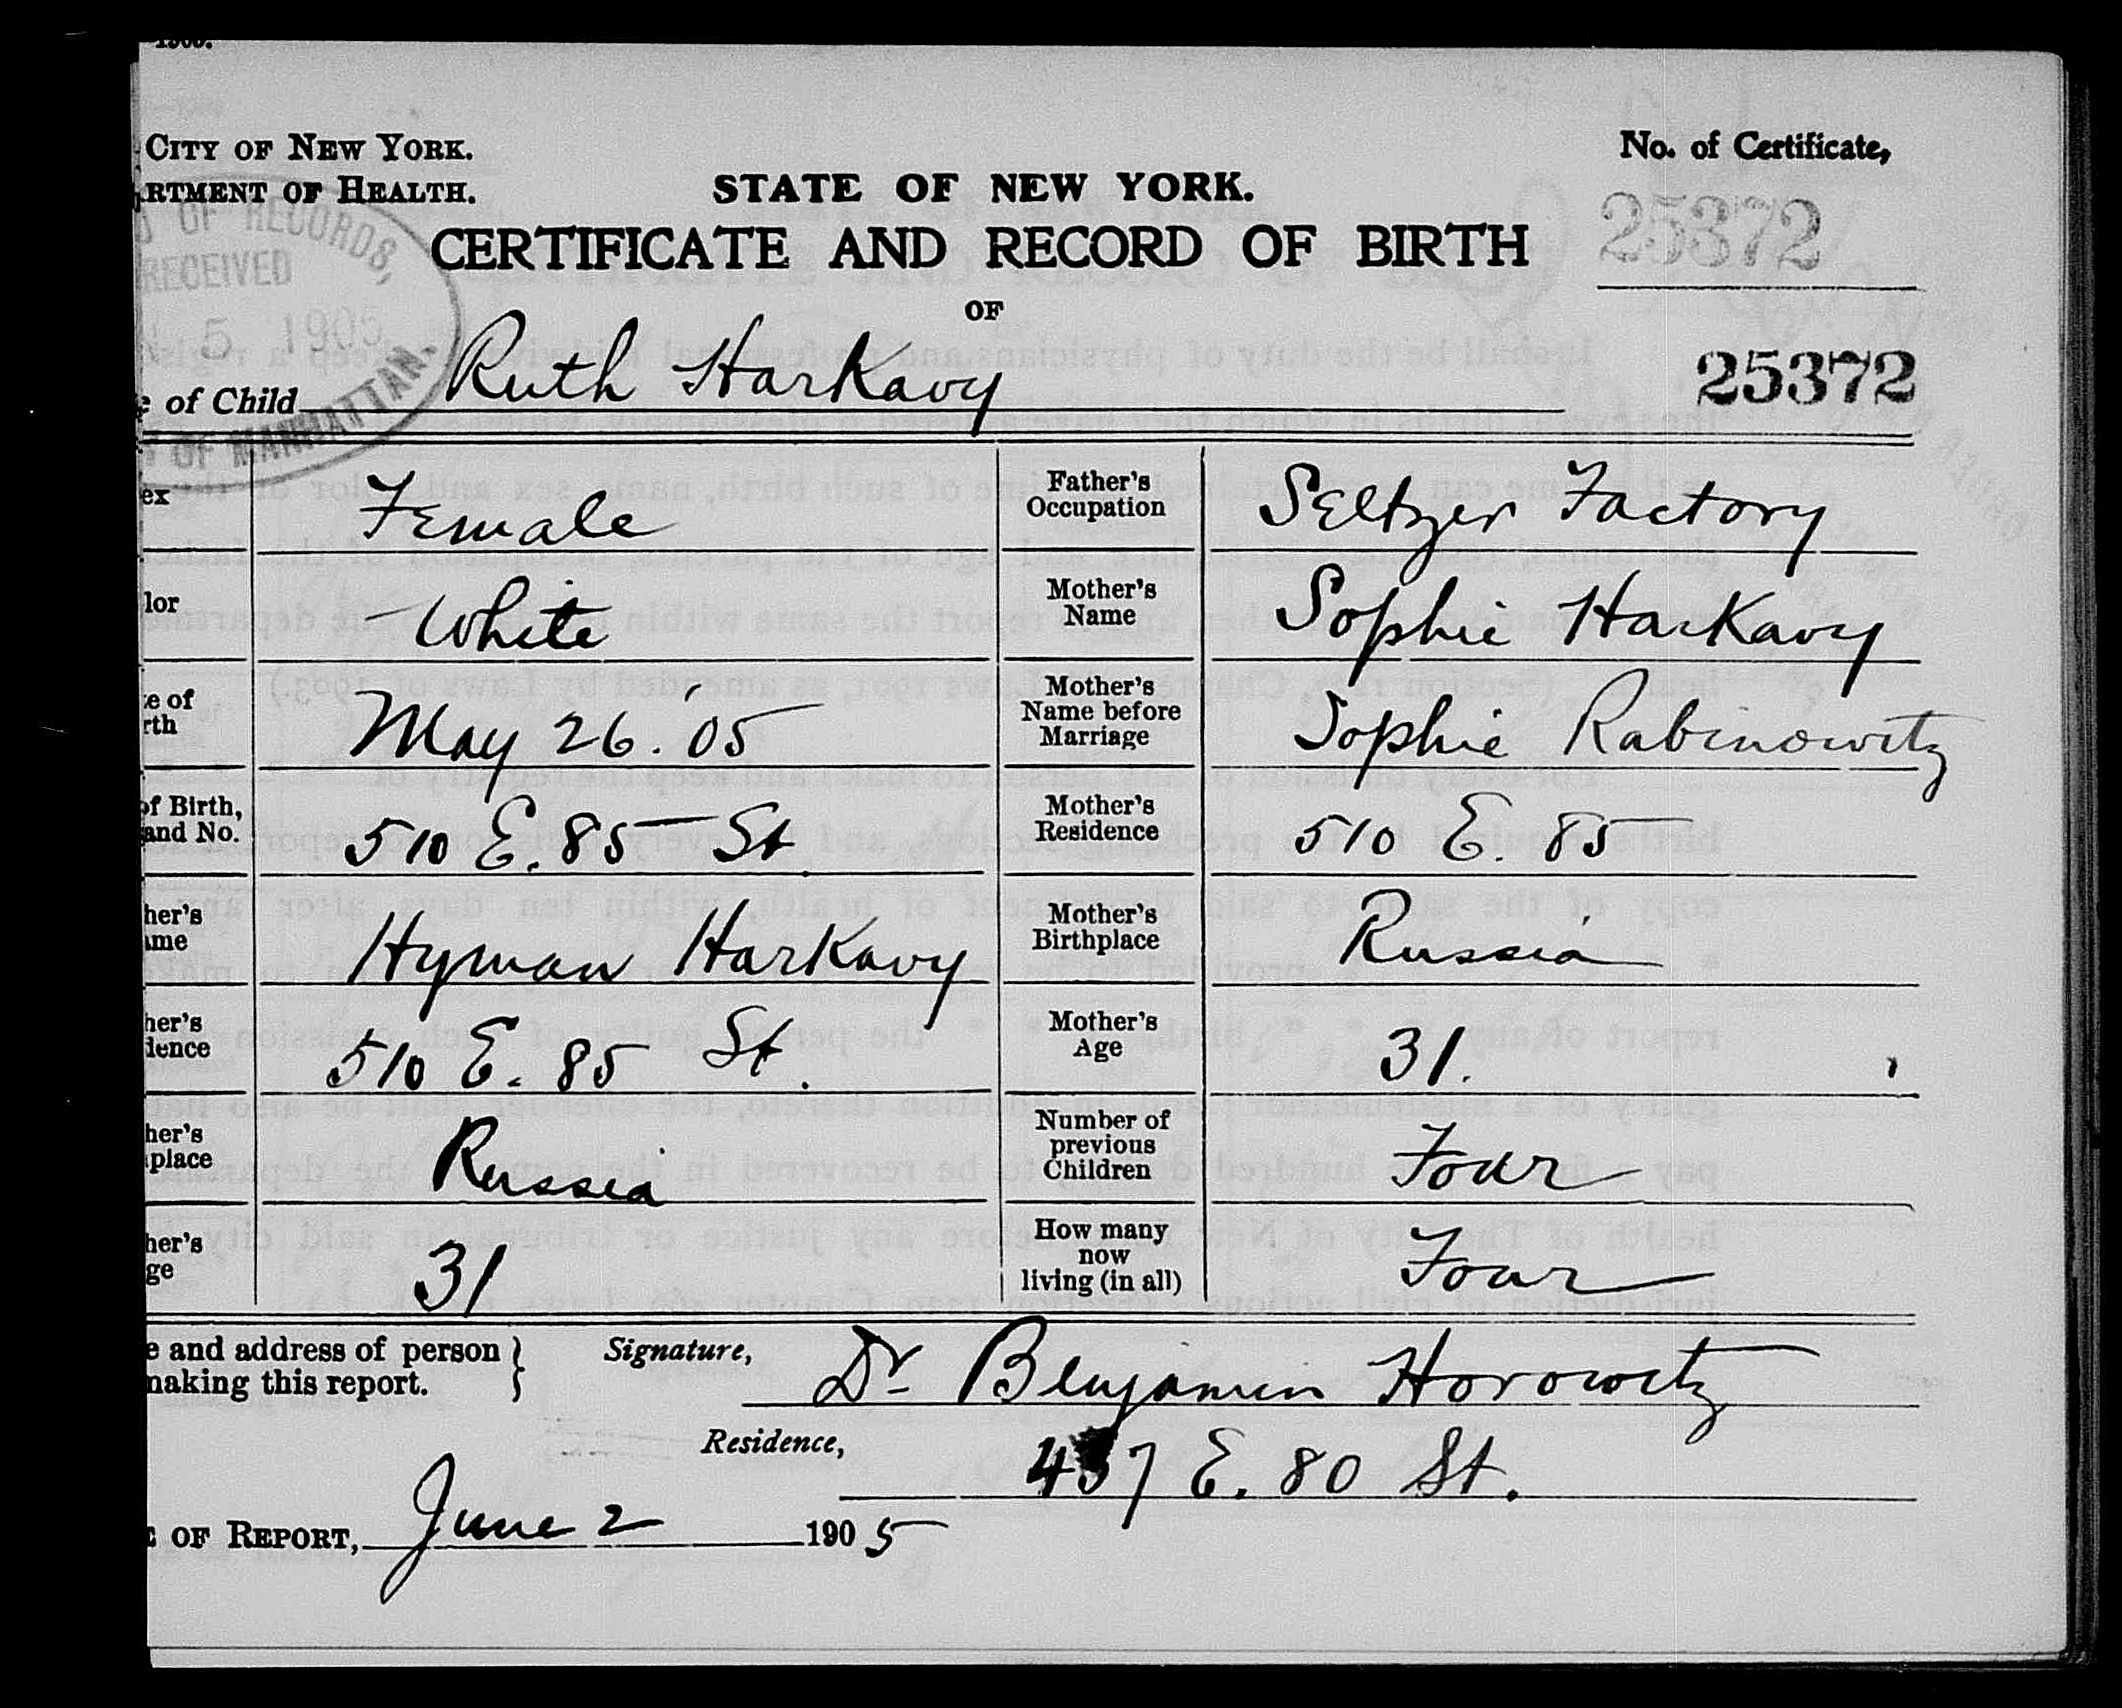 1905.
CITY OF NEW YORK.
RTMENT OF HEALTH.
STATE OF NEW YORK.
No. of Certificate,
25372
CERTIFICATE AND RECORD OF BIRTH
OF
OF RECORDS,
RECEIVED
5 1905
OF MANHATTAN.
of Child Ruth Harkavy
25372
ex Female
Father's Occupation Seltzer Factory
lor White
Mother's Name Sophie Harkavy
e of rth May 26. '05
Mother's Name before Marriage Sophie Rabinowitz
of Birth, and No. 510 E. 85 St
Mother's Residence 510 E. 85
her's ame Hyman Harkavy
Mother's Birthplace Russia
her's dence 510 E. 85 St.
Mother's Age 31.
her's place Russia
Number of previous Children Four
her's ge 31
How many now living (in all) Four
e and address of person making this report.
Signature, Dr Benjamin Horowitz
Residence, 437 E. 80 St.
OF REPORT, June 2 1905